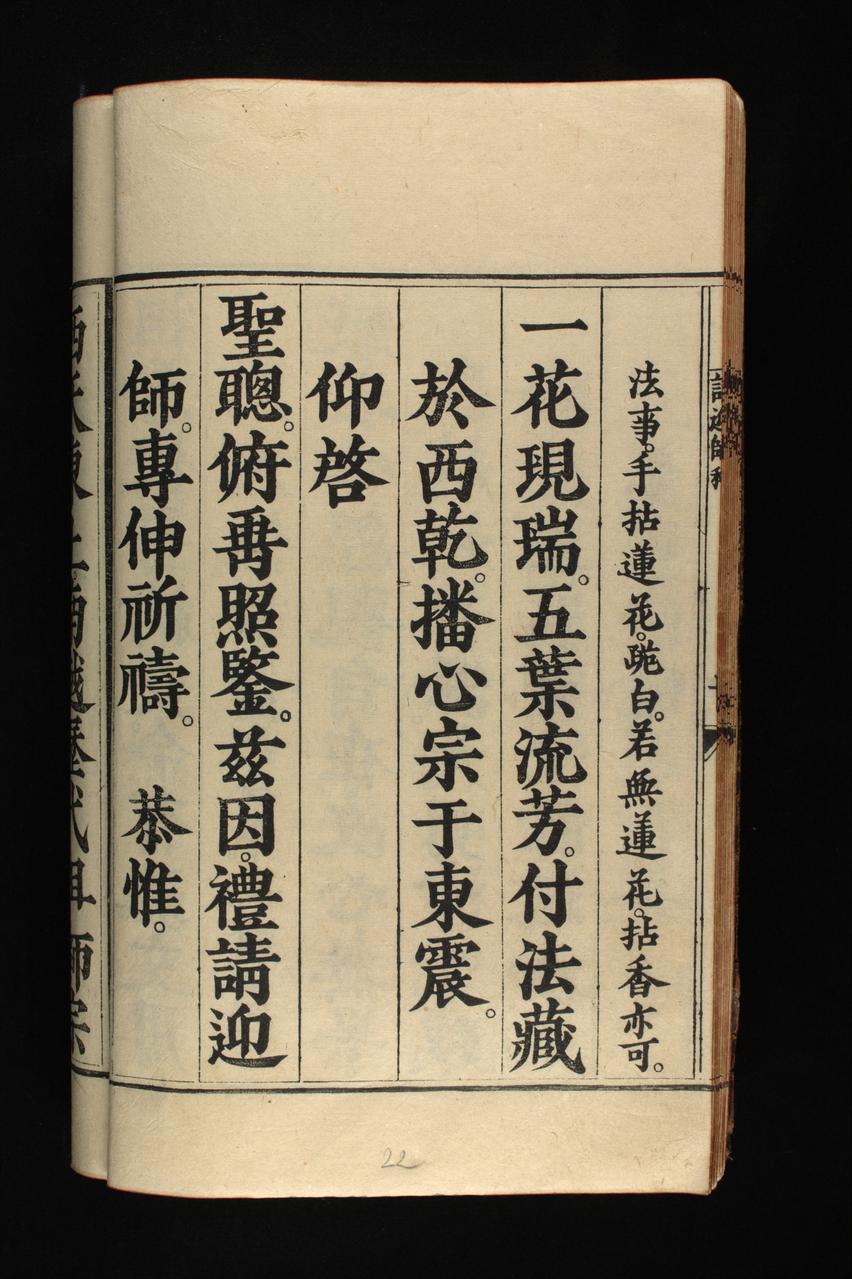 法事。手拈蓮花。跪白。若無蓮花。拈香亦可。
一花現瑞。五葉流芳。付法藏
於西乾。播心宗于東震。
仰啓
聖聰。俯垂照鑒。兹因。禮請迎
師。專伸祈禱。 恭惟。
22